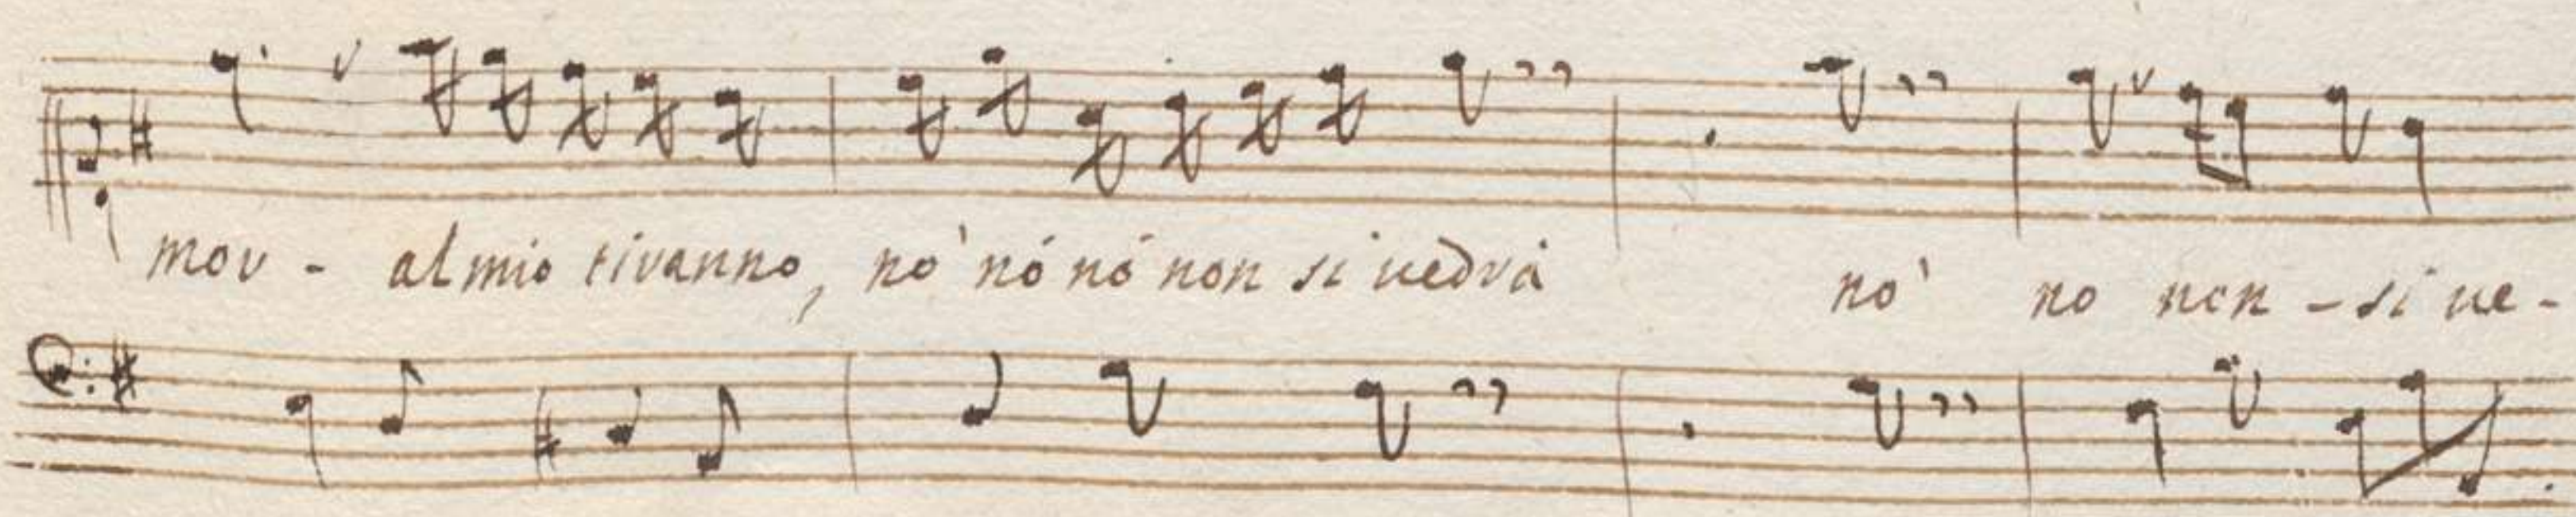 mor - al mio tiranno, no' nó nó non si uedrá no' no non - si ue -